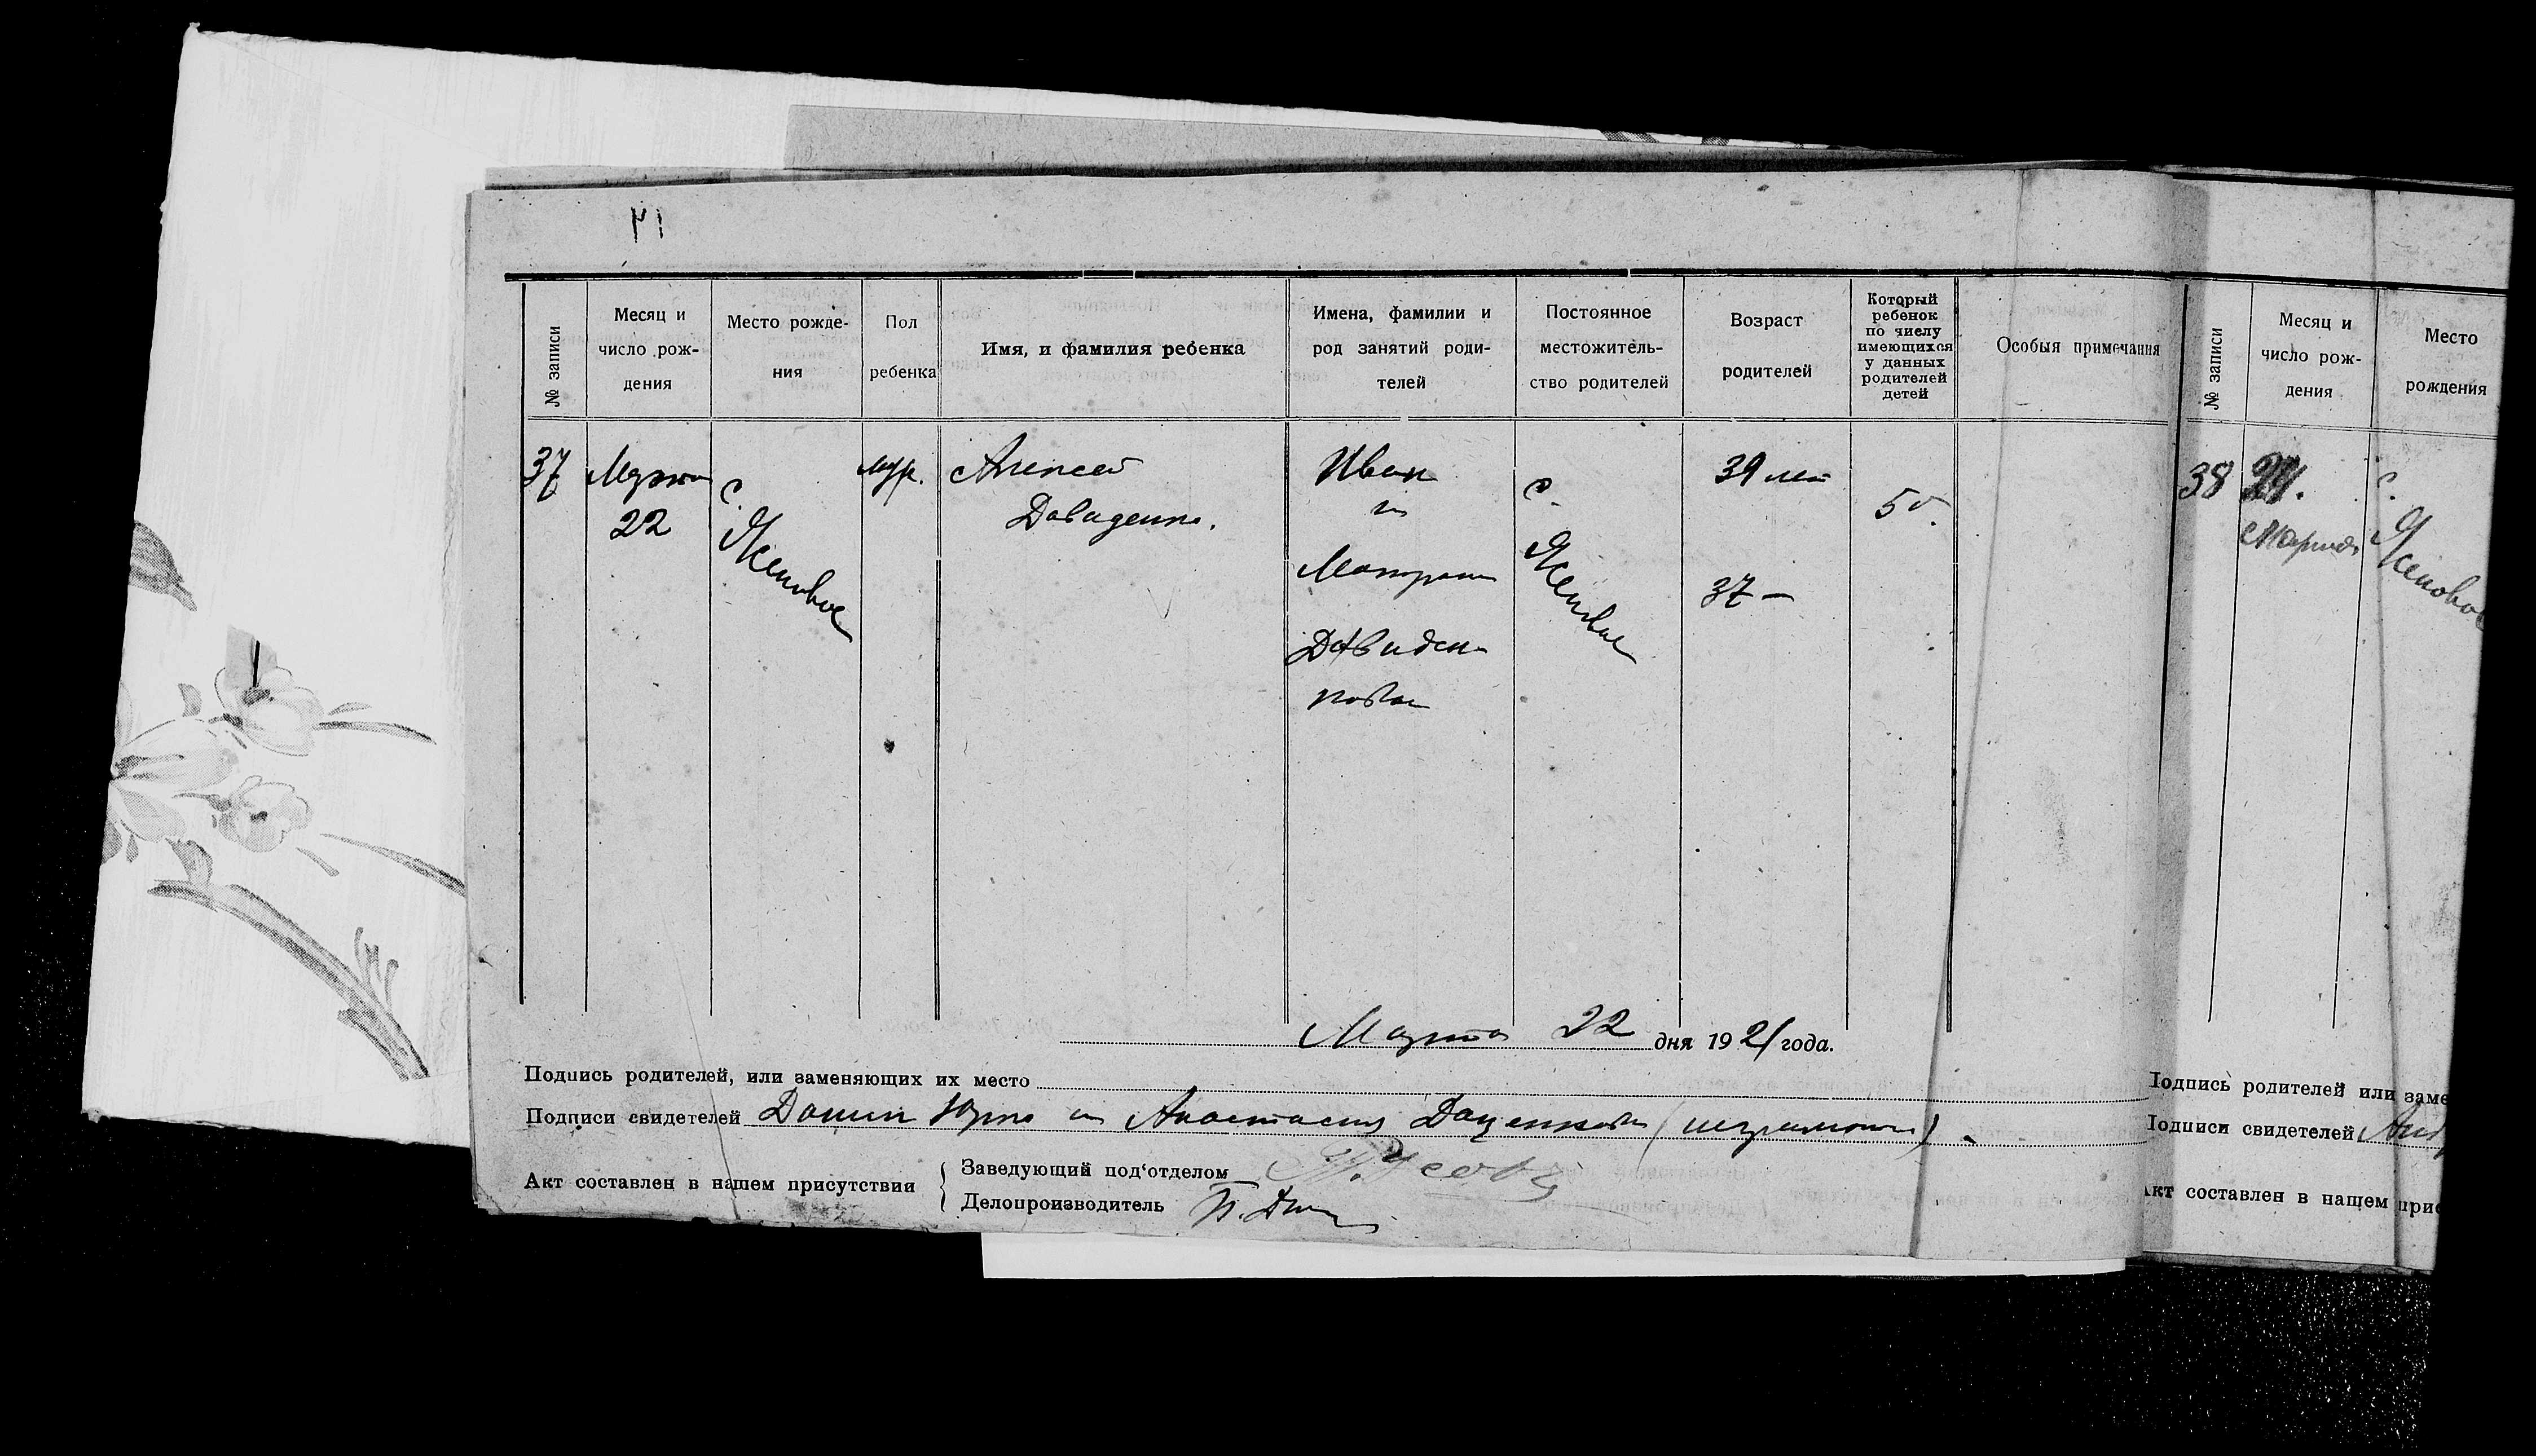 № записи
Месяц и
число рож-
дения
Место рожде-
ния
Пол
ребенка
Имя, и фамилия ребенка
Имена, фамилии и
род занятий роди-
телей
Постоянное
местожитель-
ство родителей
Возраст
родителей
Который
ребенок
по числу
имеющихся
у данных
родителей
детей
Особыя примечания
37
Марта
22
с.
Ясеновое
муж.
Алексей
Давиденко.
Иван
и
Матрона
Давиден-
ковы
с.
Ясеновое
39 лет
37 —
5
Марта 22 дня 1921 года.
Подпись родителей, или заменяющих их место
Подписи свидетелей Домин и Анастасия Даценкова (неграмотны).
Акт составлен в нашем присутствии
Заведующий под'отделом
Делопроизводитель
№ записи
Месяц и
число рож-
дения
Место
рождения
38
24.
Марта
с.
Ясеновое
Подпись родителей или заме
Подписи свидетелей
Акт составлен в нашем прис